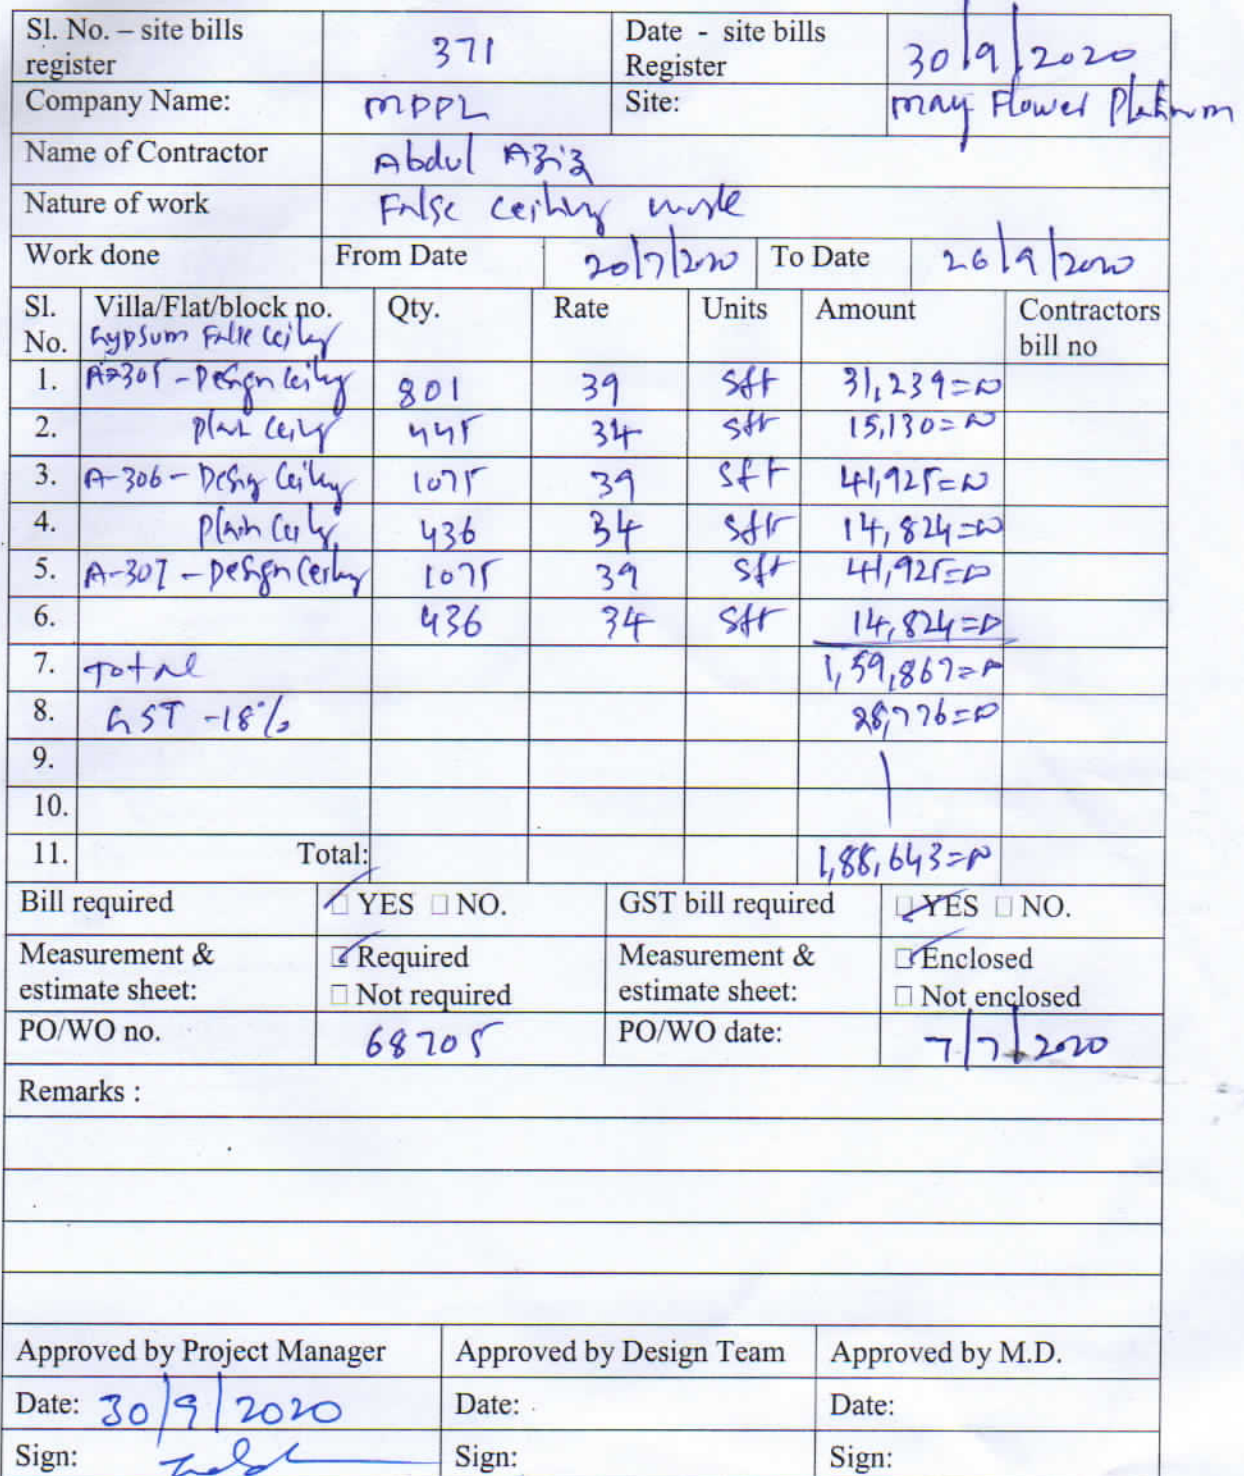 Sl. No. – site bills register 371 Date - site bills Register 30/9/2020
Company Name: MPPL Site: May Flower Platinum
Name of Contractor Abdul Aziz
Nature of work False ceiling work
Work done From Date 20/7/2020 To Date 26/9/2020
Sl. No. Villa/Flat/block no. Qty. Rate Units Amount Contractors bill no
Gypsum False Ceiling
1. A-305 - Design Ceiling 801 39 sft 31,239=00
2. Plain Ceiling 445 34 sft 15,130=00
3. A-306 - Design Ceiling 1075 39 sft 41,925=00
4. Plain Ceiling 436 34 sft 14,824=00
5. A-307 - Design Ceiling 1075 39 sft 41,925=00
6. 436 34 sft 14,824=00
7. Total 1,59,867=00
8. GST -18% 28,776=00
9.
10.
11. Total: 1,88,643=00
Bill required YES NO. GST bill required YES NO.
Measurement & estimate sheet: Required Not required Measurement & estimate sheet: Enclosed Not enclosed
PO/WO no. 68705 PO/WO date: 7/7/2020
Remarks :
Approved by Project Manager Approved by Design Team Approved by M.D.
Date: 30/9/2020 Date: Date:
Sign: Sign: Sign: